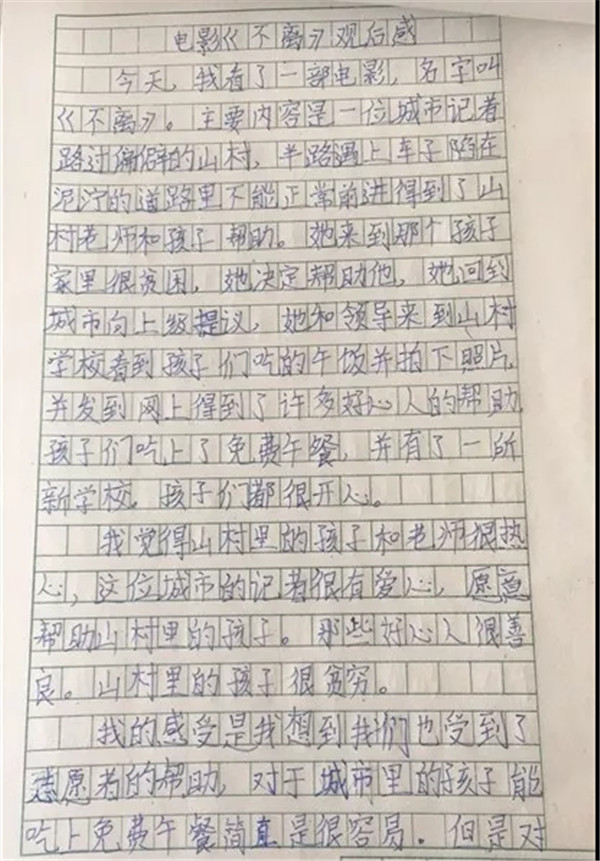 电影《不离》观后感
今天,我看了一部电影,名字叫
《不离》。主要内容是一位城市记者
路过偏僻的山村,半路遇上车子陷在
泥泞的道路里不能正常前进得到了山
村老师和孩子帮助。她来到那个孩子
家里很贫困,她决定帮助他,她回到
城市向上级提议,她和领导来到山村
学校看到孩子们吃的午饭并拍下照片,
并发到网上得到了许多好心人的帮助,
孩子们吃上了免费午餐,并有了一所
新学校,孩子们都很开心。
我觉得山村里的孩子和老师很热
心,这位城市的记者很有爱心,愿意
帮助山村里的孩子。那些好心人很善
良。山村里的孩子很贫穷。
我的感受是我想到我们也受到了
志愿者的帮助,对于城市里的孩子能
吃上免费午餐简直是很容易。但是对